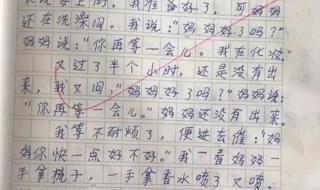 来说要上街，我准备好了，可妈妈
还在洗澡间。我说："妈妈好了吗？"
妈妈说："你再等一会儿。我在化妆。"
又过了半个小时，还是没有出
来，我又问："妈妈好了吗？"妈妈说：
"你再等一会儿。"妈妈还没有出来。
我等不耐烦了，便进去催："妈
妈你快一点好不好。"我一看妈妈一
手拿梳子，一手拿香水喷了又喷。